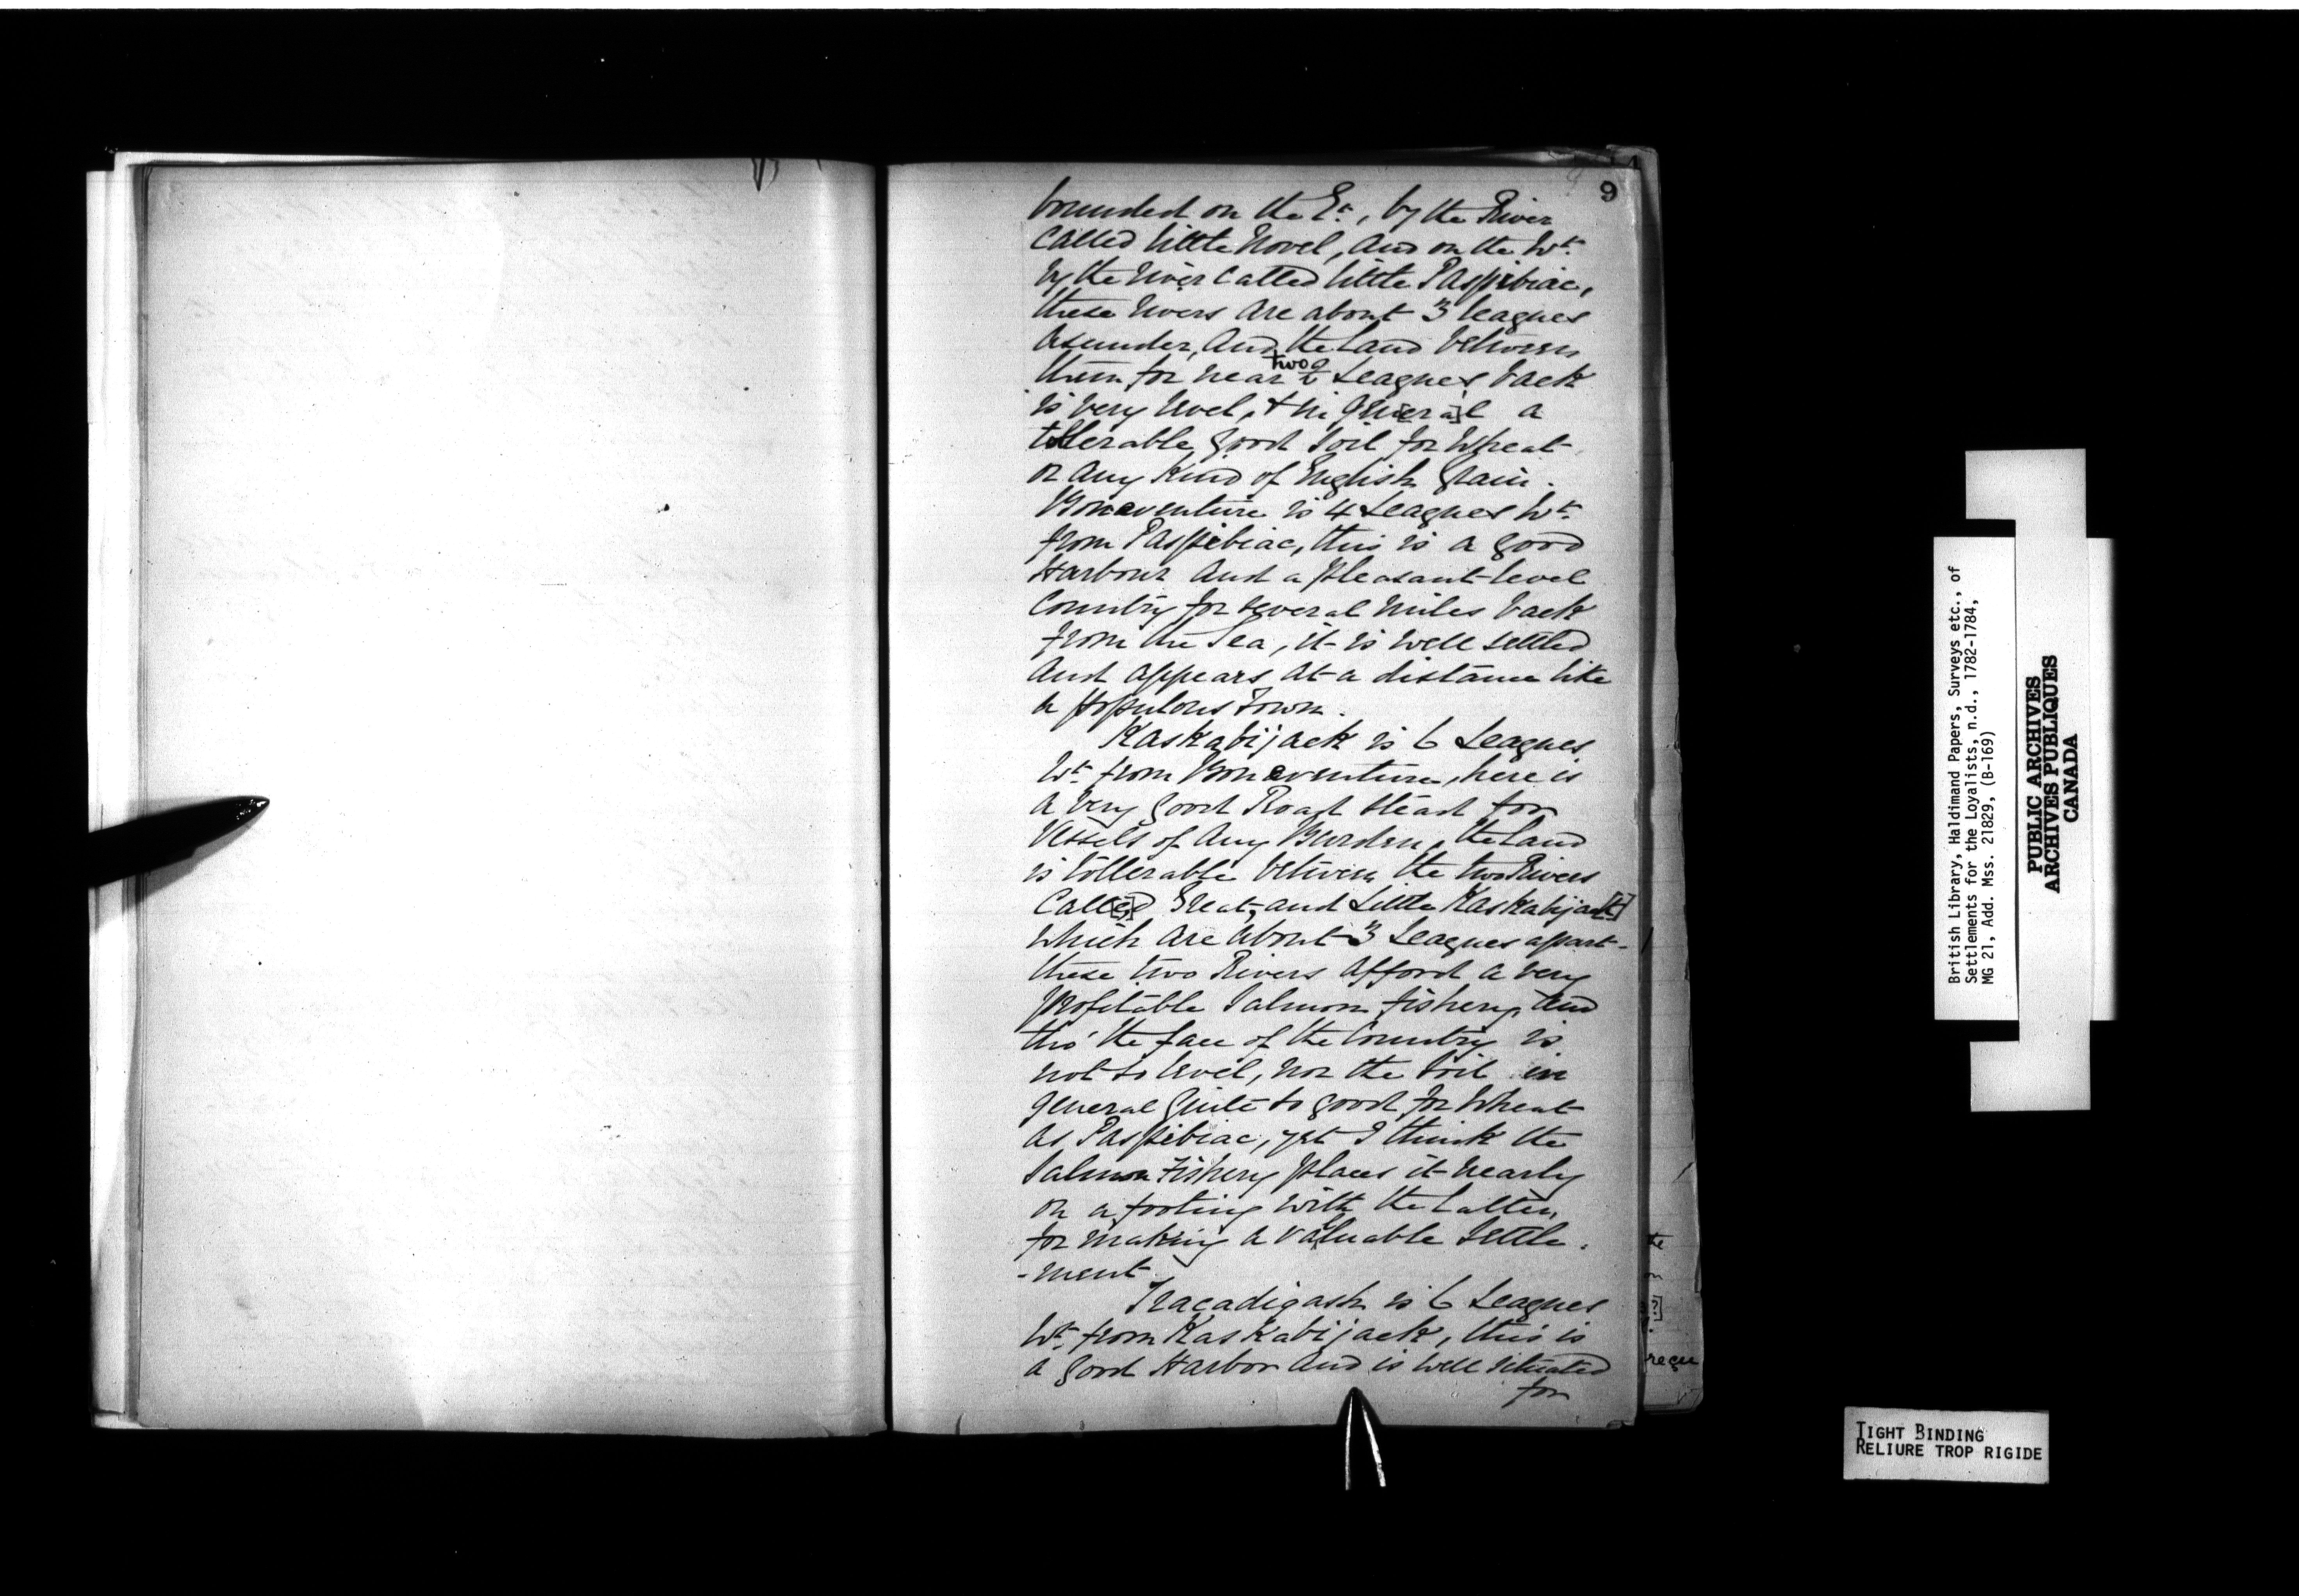 9
bounded on the Et., by the River
Called little Novel, and on the Wt.
by the river Called little Paspibiac,
these rivers are about 3 leagues
asunder, and the Land between
them for near two 2 Leagues back
is very level, & in gen[er a]l a
tollerable good Soil for Wheat
or any Kind of English Grain.
Bonaventure is 4 Leagues Wt.
from Paspibiac, this is a good
Harbour and a pleasant level
Country for several miles back
from the Sea, it is well settled
and appears at a distance like
a populous Town.
Kaskabijack is 6 Leagues
Wt. from Bonaventure, here is
a very good Road stead for
Vessels of any Burden, the Land
is tollerable between the two Rivers
Call[e]d Great, and Little Kaskabijac[k]
which are about 3 Leagues apart-
these two Rivers afford a very
profitable Salmon fishery, and
tho' the face of the Country is
not so level, nor the Soil in
general quite so good for Wheat
as Paspibiac, yet I think the
Salmon Fishery places it nearly
on a footing with the Latter,
for making a valuable Settle-
-ment
Tracadigash is 6 Leagues
Wt. from Kaskabijack, this is
a good Harbor and is well situated
for
the
on
?]
reçu
British Library, Haldimand Papers, Surveys etc., of
Settlements for the Loyalists, n.d., 1782-1784,
MG 21, Add. Mss. 21829, (B-169)
PUBLIC ARCHIVES
ARCHIVES PUBLIQUES
CANADA
TIGHT BINDING
RELIURE TROP RIGIDE